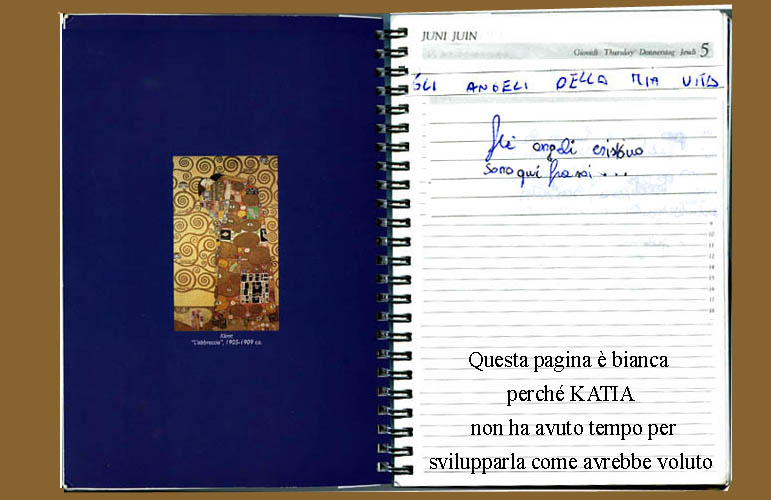 Klimt
"L'abbraccio", 1905-1909 ca.
JUNI JUIN
Giovedì Thursday Donnerstag Jeudi 5
GLI ANGELI DELLA MIA VITA
Gli angeli esistono
sono qui fra noi...
9
10
11
12
14
15
16
17
18
Questa pagina è bianca
perché KATIA
non ha avuto tempo per
svilupparla come avrebbe voluto